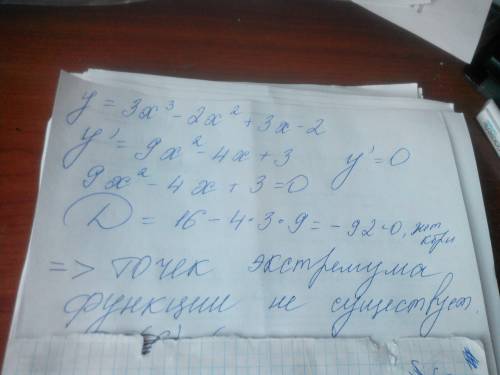 y = 3x³ - 2x² + 3x - 2
y' = 9x² - 4x + 3 y' = 0
9x² - 4x + 3 = 0
D = 16 - 4·3·9 = -92 < 0, нет
корн
=> точек экстремума
функции не существует.